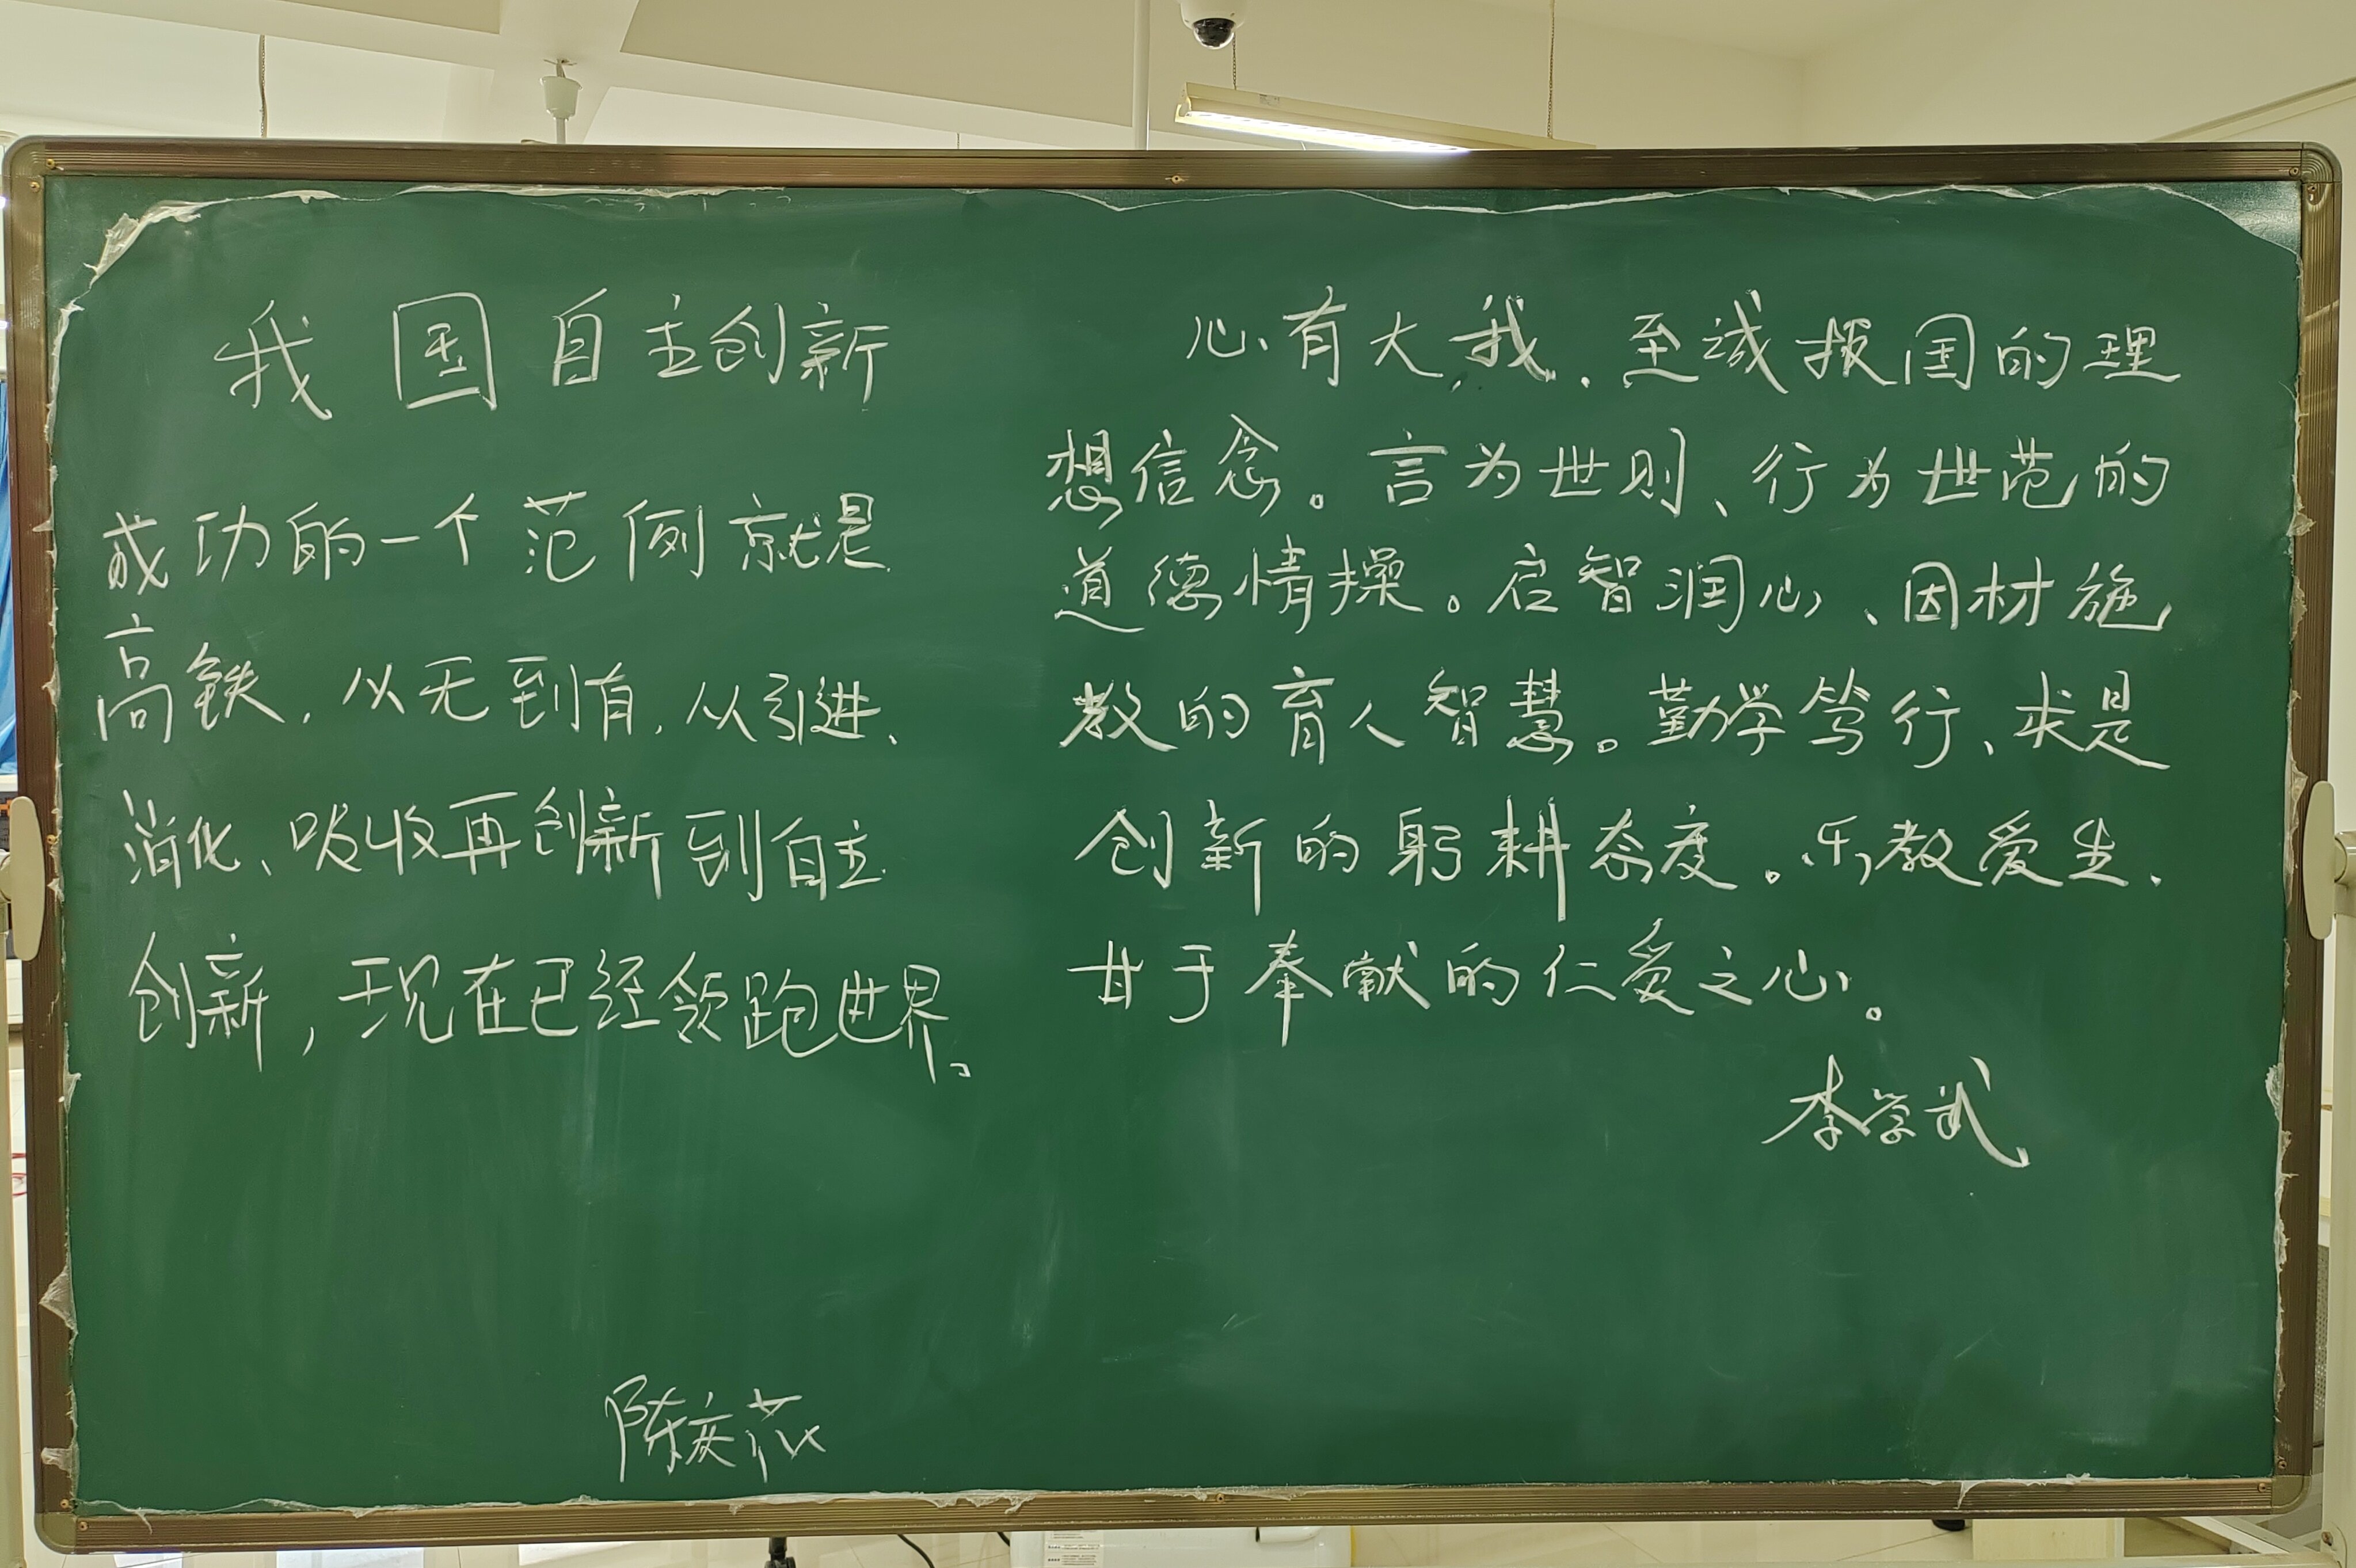 我国自主创新
成功的一个范例就是
高铁，从无到有，从引进、
消化、吸收再创新到自主
创新，现在已经领跑世界。
陈庆花
心有大我、至诚报国的理
想信念。言为世则、行为世范的
道德情操。启智润心、因材施
教的育人智慧。勤学笃行、求是
创新的躬耕态度。乐教爱生、
甘于奉献的仁爱之心。
李学武